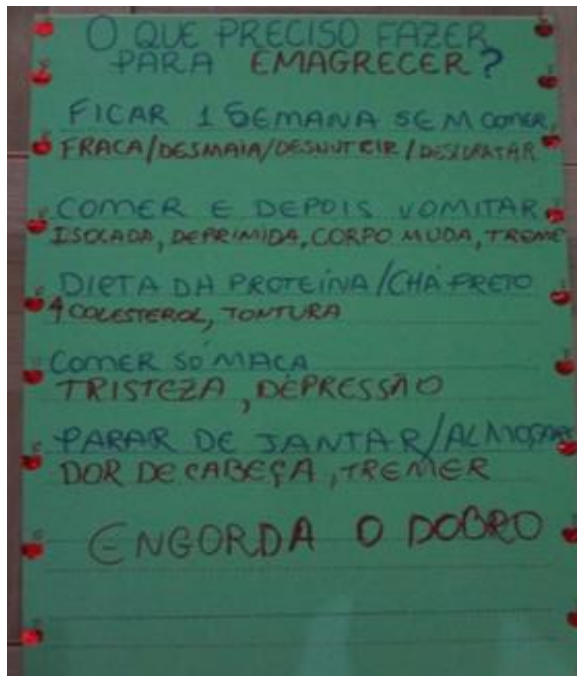 O QUE PRECISO FAZER
PARA EMAGRECER?
FICAR 1 SEMANA SEM COMER,
FRACA/DESMAIA/DESNUTRIR/DESIDRATAR
COMER E DEPOIS VOMITAR
ISOLADA, DEPRIMIDA, CORPO MUDA, TREME
DIETA DA PROTEÍNA/CHÁ PRETO
↑ COLESTEROL, TONTURA
COMER SÓ MAÇA
TRISTEZA, DEPRESSÃO
PARAR DE JANTAR/ALMOÇAR
DOR DE CABEÇA, TREMER
ENGORDA O DOBRO